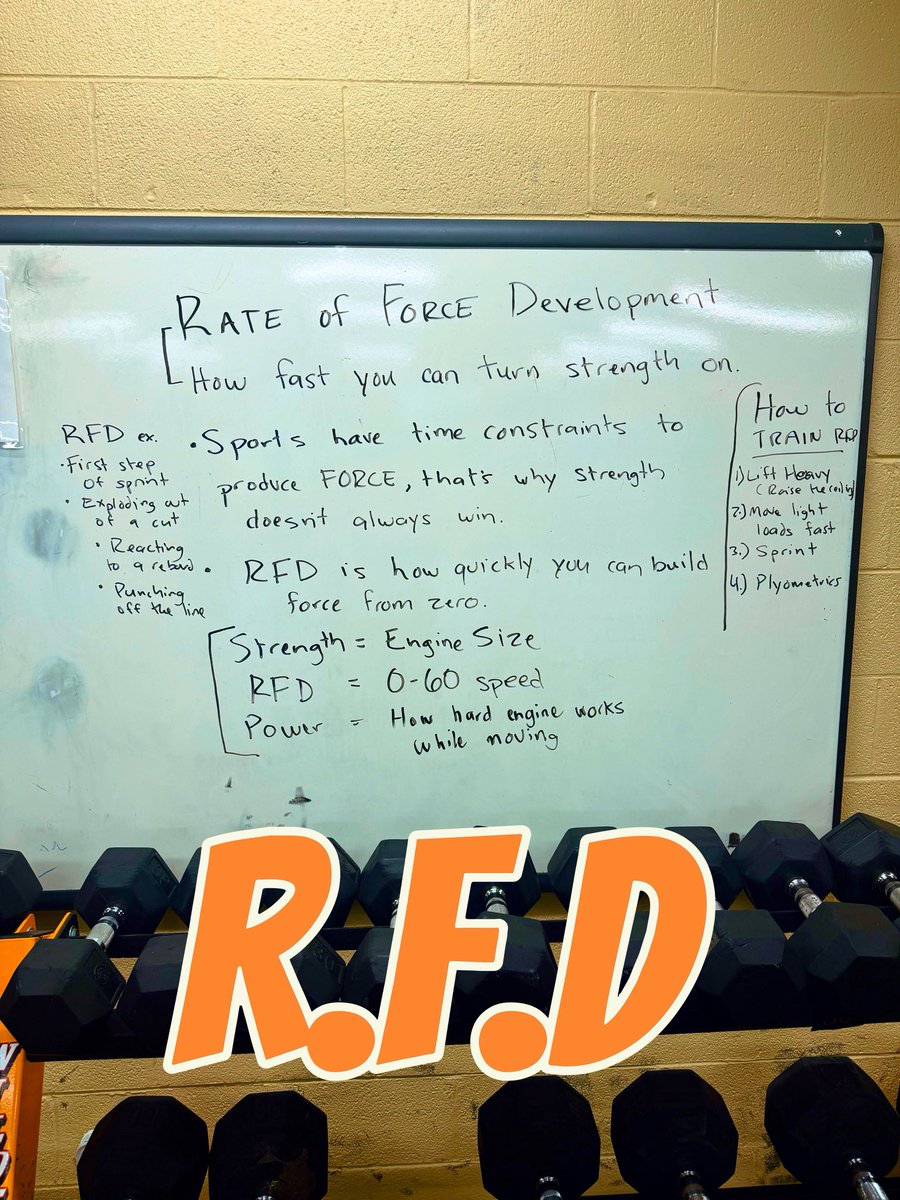 RATE of FORCE Development
How fast you can turn strength on.
RFD ex.
• First step
of sprint
• Exploding out
of a cut
• Reacting
to a rebound
• Punching
off the line
• Sports have time constraints to
produce FORCE, that's why strength
doesn't always win.
• RFD is how quickly you can build
force from zero.
Strength = Engine Size
RFD = 0-60 speed
Power = How hard engine works
while moving
How to
TRAIN RFD
1) Lift Heavy
(Raise the ceiling)
2.) Move light
loads fast
3.) Sprint
4.) Plyometrics
R.F.D